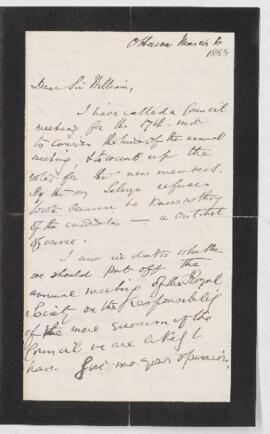 Ottawa March 6
1888
Dear Sir William,
I have called a Council
meeting for the 17th inst.
to consider the time of the annual
meeting, & to count up the
votes for the new members.
By the way Selwyn refuses
to vote because he knows nothing
of the candidates —
of course.
I am in doubt whether
we should put off the
annual meeting of the Royal
Society on the responsibility
of the mere quorum of the
Council we are likely to
have. Give me your opinion.